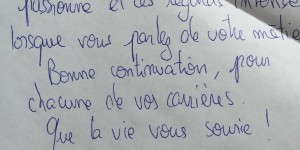 passionné et ces regards intense
lorsque vous parlez de votre métie
Bonne continuation, pour
chacune de vos carrières.
Que la vie vous sourie !